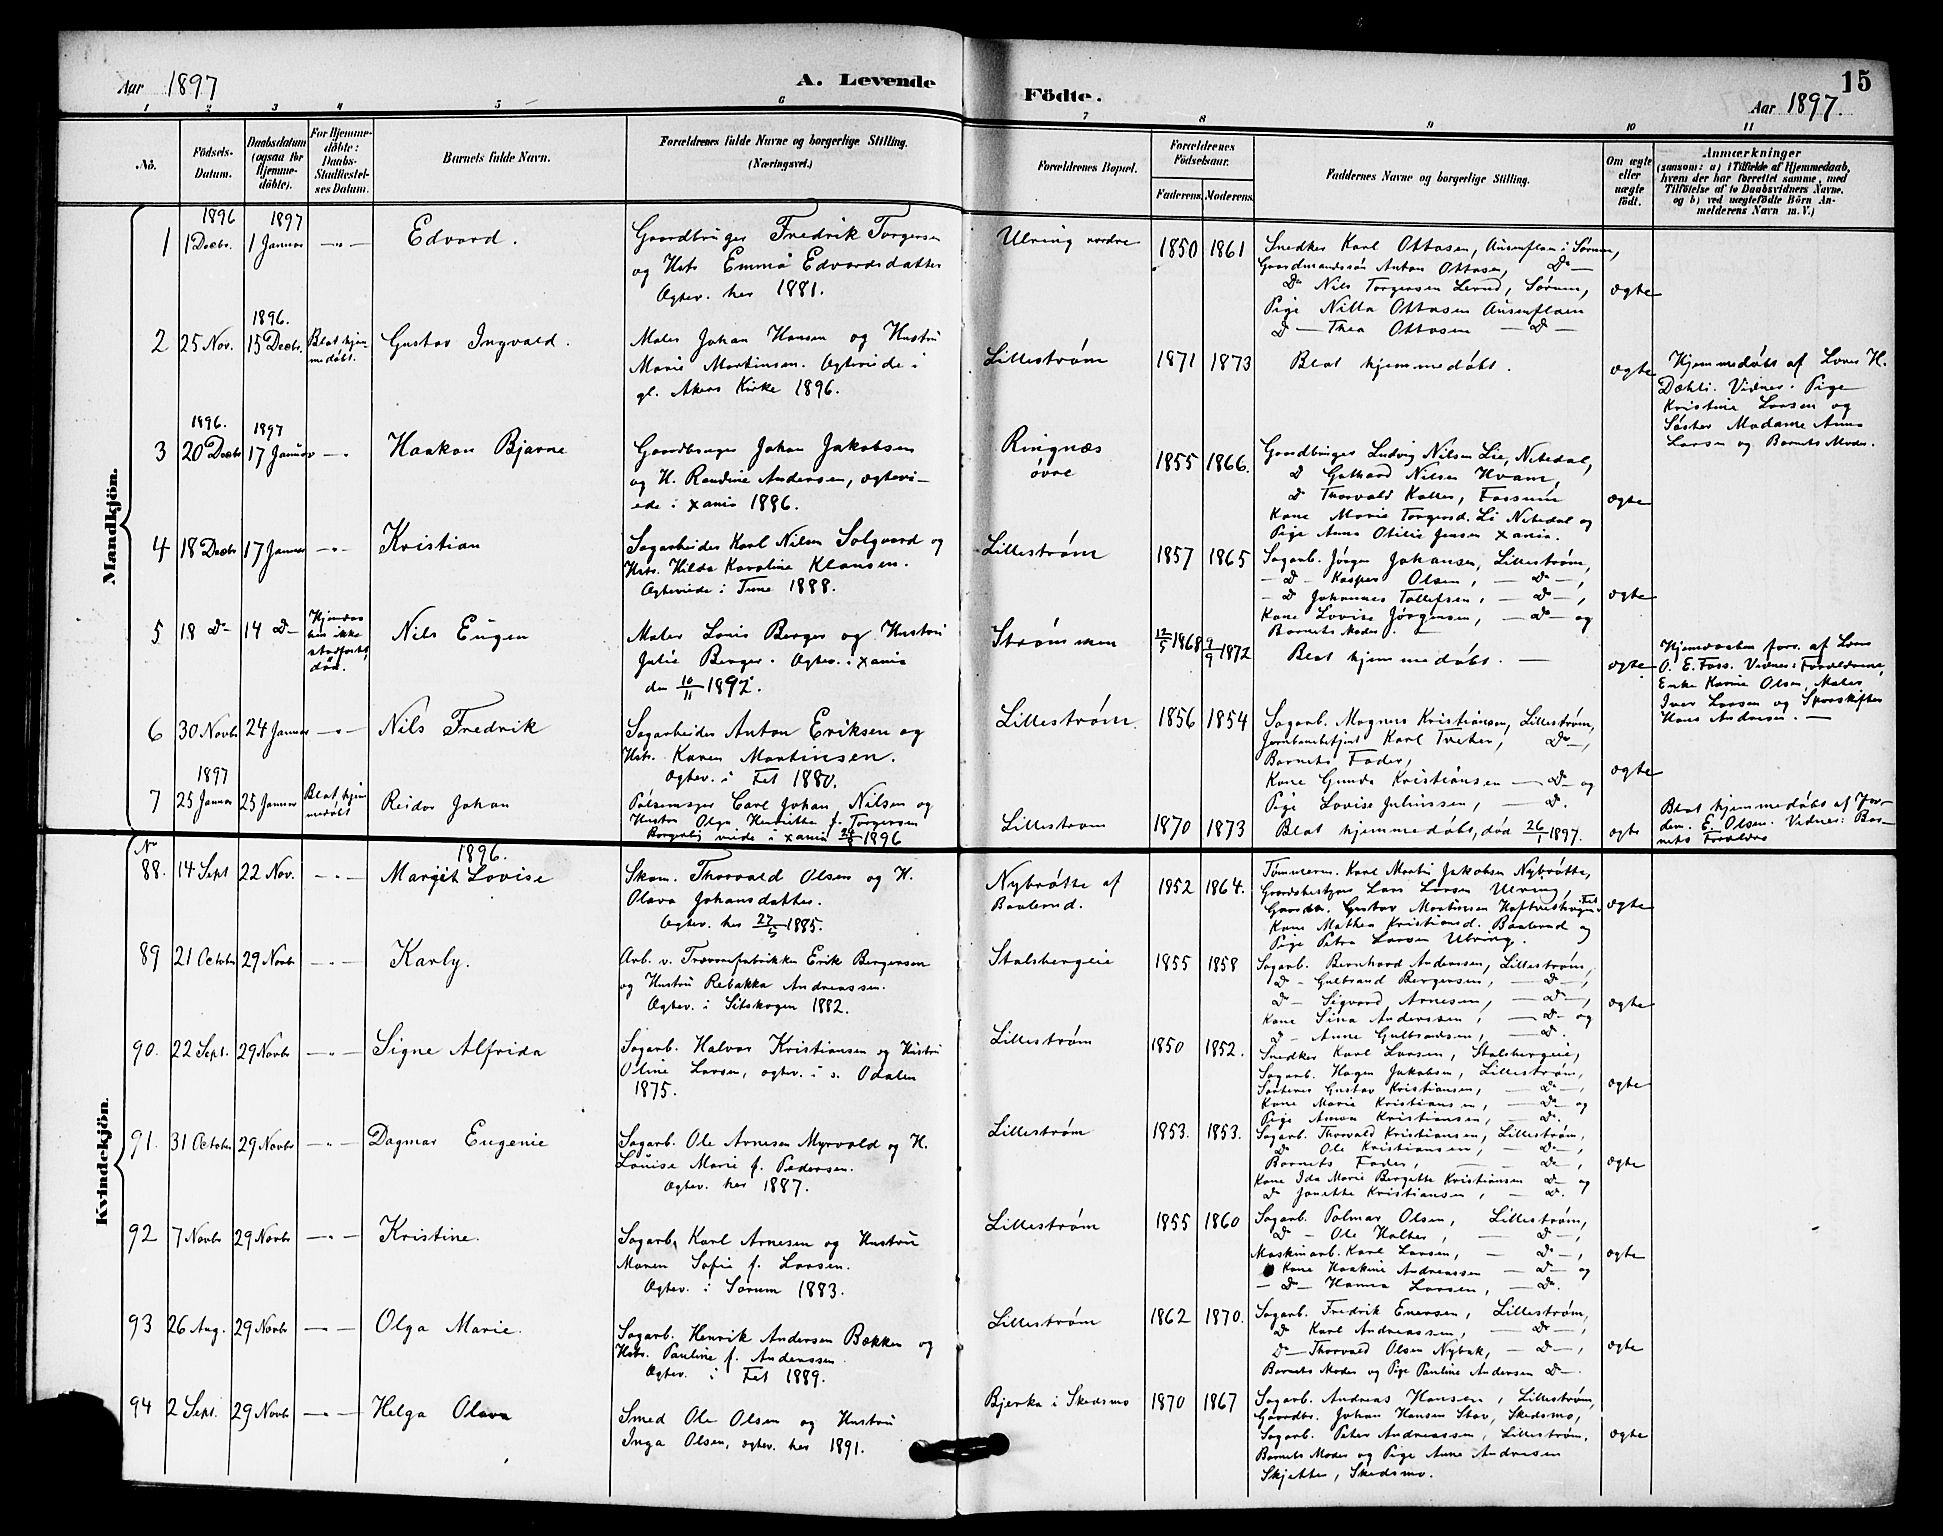 Aar 1897
A. Levende
Födte.
15
Aar 1897.
1 2 3 4 5 6 7 8 9 10 11
No.
Födsels-Datum.
Daabsdatum (ogsaa for Hjemme-döbte).
For Hjemme-döbte: Daabs-Stadfæstel-ses Datum.
Barnets fulde Navn.
Forældrenes fulde Navne og borgerlige Stilling. (Næringsvei.)
Forældrenes Bopæl.
Forældrenes Födselsaar.
Faderens. Moderens.
Faddernes Navne og borgerlige Stilling.
Om ægte eller uægte födt.
Anmærkninger
(saasom: a) i Tilfælde af Hjemmedaab, hvem der har forrettet samme, med Tilföielse af to Daabsvidners Navne. og b) ved uægtefödte Börn An-melderens Navn m. V.)
Mandkjön.
1896 1897
1 1 Decbr. 1 Januar —"— Edvard.
Gaardbruger Fredrik Torgersen
og Hstr. Emma Edvardsdatter
Ægtev. her 1881.
Ulving nordre 1850 1861
Snedker Karl Ottosen, Ausenfloen i Sørum,
Gaardmandssøn Anton Ottosen, Do —
Do Nils Torgersen Lerud, Sørum,
Pige Nilla Ottosen Ausenfloen
D — Thea Ottosen — D —
ægte
1896.
2 25 Nov. 15 Decbr. Blot hjem-
medøbt.
Gustav Ingvald.
Maler Johan Hansen og Hustru
Marie Martinsen. Ægteviede i
gl. Akers Kirke 1896.
Lillestrøm 1871 1873 Blot hjemmedøbt. ægte
Hjemmedøbt af Lars H.
Dæhli. Vidner: Pige
Kristine Larsen og
Søster Madame Anna
Larsen og Barnets Moder.
1896. 1897
3 20 Decbr 17 Januar —"— Haakon Bjarne
Gaardbruger Johan Jakobsen
og H. Randine Andersen, ægtevi-
ede i Xania 1886.
Ringnæs
øvre
1855 1866.
Gaardbruger Ludvig Nilsen Lie, Nitedal,
D Gothard Nilsen Hvam,
Do Thorvald Kaller, Fossum
Kone Marie Torgersd. Li Nitedal og
Pige Anna Otilie Jensen Xania.
ægte
4 18 Decbr 17 Januar —"— Kristian
Sagarbeider Karl Nilsen Solgaard og
Hstr. Hilda Karoline Klausen.
Ægteviede i Tune 1888.
Lillestrøm 1857 1865
Sagarb. Jørgen Johansen, Lillestrøm,
— D — Kasper Olsen, — Do —,
— D Johannes Tollefsen, — Do —,
Kone Lovise Jørgensen, — Do — og
Barnets Moder. —
ægte
5 18 D— 14 D—
ikke
død.
Nils Eugen
Maler Louis Berger og Hustru
Julie Berger. Ægtev. i Xania
den 10/11 1892.
Strømmen 12/5 1868 9/9 1872 Blot hjemmedøbt. — ægte
Hjemmedaaben forr. af Lars
O. E. Foss. Vidner: Forældrene,
Enke Karine Olsen, Maler
Iver Larsen og Sporskifter
Hans Andersen. —
6 30 Novbr 24 Januar —"— Nils Fredrik
Sagarbeider Anton Eriksen og
Hstr. Karen Martinsen.
Ægtev. i Fet 1880.
Lillestrøm 1856 1854
Sagarb. Magnus Kristiansen, Lillestrøm,
Karl Treter, Do —,
Barnets Fader,
Kone Gunda Kristiansen — D — og
Pige Lovise Juliussen, — D.
ægte
1897
7 25 Januar 25 Januar Blot hjem-
medøbt
Reidar Johan
Pølsemager Carl Johan Nilsen og
Hustru Olga Henriette f. Torgersen
Borgerlig viede i Xania 1896
Lillestrøm 1870 1873 Blot hjemmedøbt, død 26/1 1897. ægte
Blot hjemmedøbt af Jor-
dem. E. Olsen. Vidner: Bar-
nets Forældre
Kvindekjön.
No 1896.
88. 14 Sept 22 Nov. —"— Margit Lovise
Skom. Thorvald Olsen og H.
Olava Johansdatter.
Ægtev. her 27/5 1885.
Nybrøtte af
Baalerud.
1852 1864.
Tømmerm. Karl Martin Jakobsen Nybrøtte,
Gaardbestyrer Lars Larsen Ulving,
Gustav Martinsen
Kone Mathea Kristiansd. Baalerud og
Pige Petra Larsen Ulving.
ægte
89 21 Octobr 29 Novbr —"— Karly.
Arb. v. Trævarefabrikken Erik Bergersen
og Hustru Rebakka Andreassen.
Ægtev. i Sitskogen 1882.
Stalsbergeie 1855 1858
Sagarb. Bernhard Anderssen, Lillestrøm,
D — Gulbrand Bergersen, — D —,
D — Sigvard Arnesen, — D —,
Kone Sina Anderssen, — D — og
D — Anne Gulbrandsen, — D.
ægte
90. 22 Sept. 29 Novbr —"— Signe Alfrida
Sagarb. Halvor Kristiansen og Hustru
Oline Larsen, ægtev. i s. Odalen
1875.
Lillestrøm 1850 1852.
Snedker Karl Larsen, Stalsbergeie,
Sagarb. Hagen Jakobsen, Lillestrøm,
Sorterer Gustav Kristiansen, — D —,
Kone Marie Kristiansen, — D — og
Pige Anna Kristiansen, — D.
ægte
91. 31 Octobr 29 Novbr —"— Dagmar Eugenie
Sagarb. Ole Arnesen Myrvold og H.
Louise Marie f. Pedersen.
Ægtev. her 1887.
Lillestrøm 1853. 1853.
Sagarb. Thorvald Kristiansen, Lillestrøm,
Do Ole Kristiansen, — D —,
Barnets Fader, — Do —,
Kone Ida Marie Bergette Kristiansen D — og
Do Janette Kristiansen, — D.
ægte
92 7 Novbr 29 Novbr —"— Kristine.
Sagarb. Karl Arnesen og Hustru
Maren Sofie f. Larsen.
Ægtev. i Sørum 1883.
Lillestrøm 1855 1860
Sagarb. Palmar Olsen, Lillestrøm,
D — Ole Halter, — D —,
Maskinarb. Karl Larsen, — D —,
Kone Haakine Andreassen — D — og
— D — Hanna Larsen, — D.
ægte
93 26 Aug. 29 Novbr —"— Olga Marie.
Sagarb. Henrik Andersen Bakken og
Hstr. Pauline f. Anderssen.
Ægtev. i Fet 1889.
Lillestrøm 1862 1870.
Sagarb. Fredrik Enersen, Lillestrøm,
D Karl Andreassen, — Do —,
Do — Thorvald Olsen Nybak, — D —,
Barnets Moder og Pige Pauline Andersen D —
ægte
94 2 Sept. 29 Novbr —"— Helga Olava
Smed Ole Olsen og Hustru
Inga Olsen, ægtev. her 1891.
Bjerka i Skedsmo 1870 1867
Sagarb. Andreas Hansen, Lillestrøm,
Gaardbr. Johan Hansen Stav, Skedsmo,
Sagarb. Peter Andreassen, Lillestrøm.
Barnets Moder og Pige Anna Andresen
Skjatter, Skedsmo.
ægte